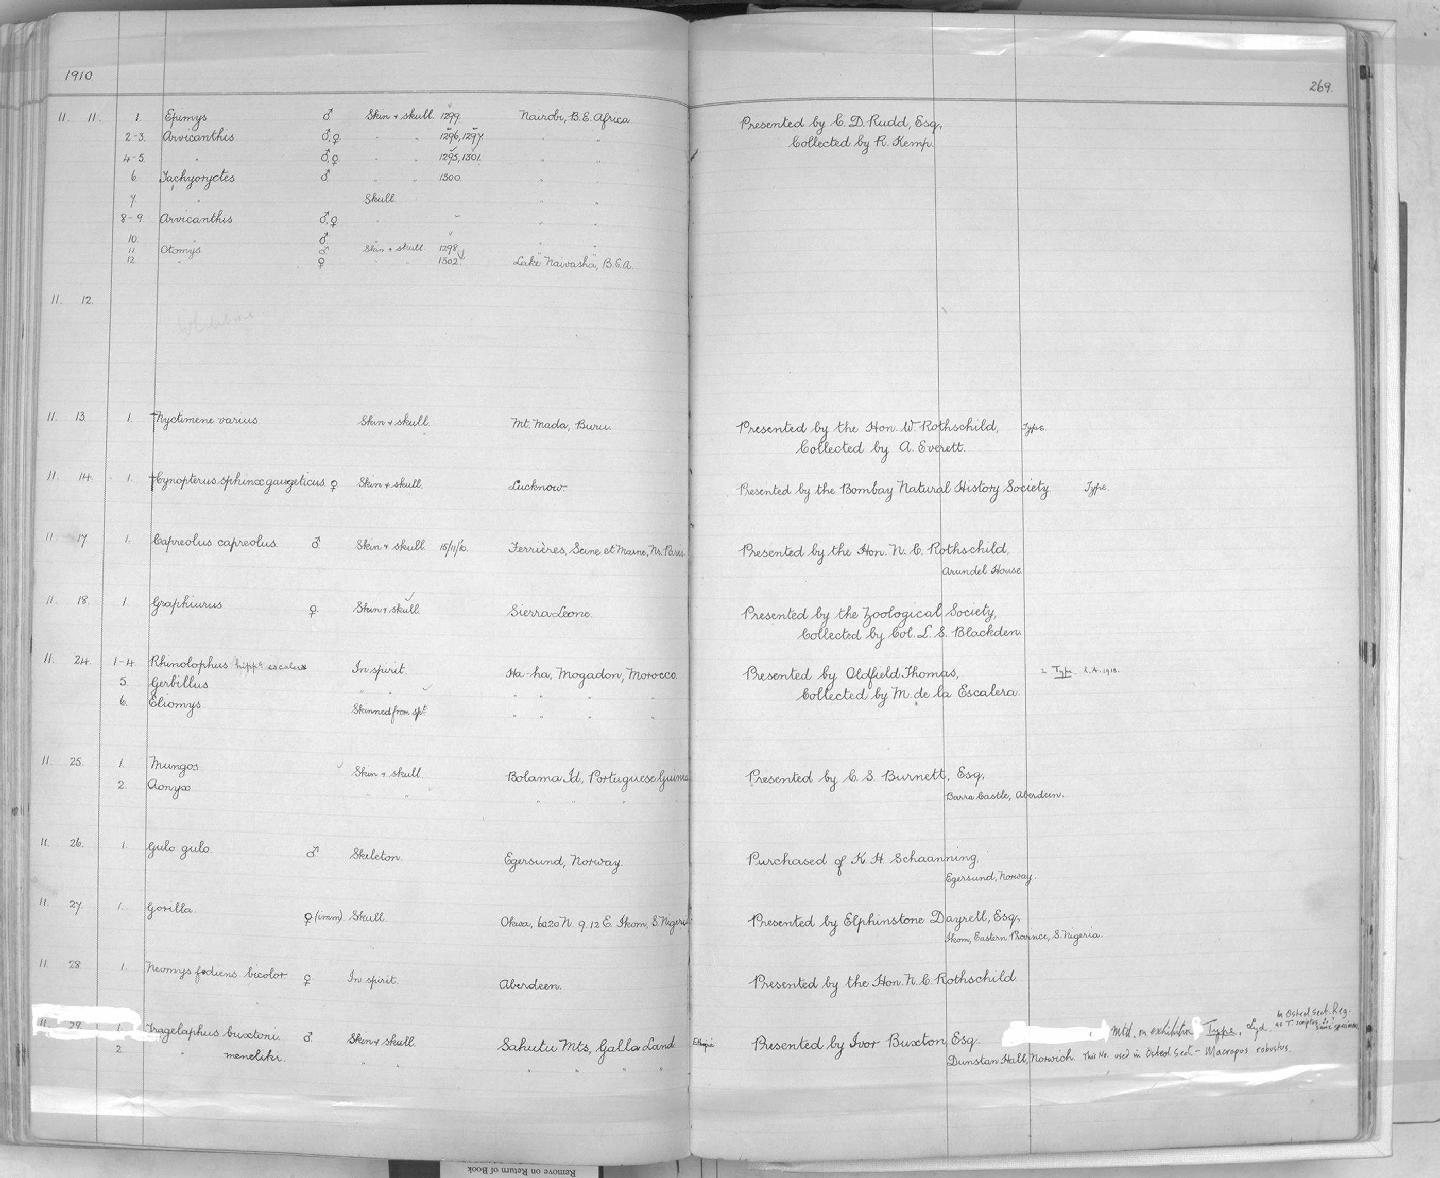 1910
269.
11. 11. 1. Epimys ♂ Skin + skull. 1299. Nairobi, B.E. Africa. Presented by C. D. Rudd, Esq,
2-3. Arvicanthis ♂,♀ " " 1296, 1297. " " Collected by R. Kemp.
4-5. " ♂,♀ " " 1295, 1301. " "
6. Tachyoryctes ♂ " " 1300. " "
7. " Skull. " "
8-9. Arvicanthis ♂,♀ " " "
10. " ♂ " "
11. Otomys ♂ Skin + skull. 1298. " "
12. " ♀ " " 1302. Lake Naivasha, B.E.A.
11. 12.
11. 13. 1. †Nyctimene varius Skin + skull. Mt. Mada, Buru. Presented by the Hon. W. Rothschild, Type.
Collected by A. Everett.
11. 14. 1. †Cynopterus sphinx gangeticus. ♀ Skin + skull. Lucknow. Presented by the Bombay Natural History Society. Type.
11. 17. 1. Capreolus capreolus. ♂ Skin + skull. 15/11/10. Ferrières, Seine et Marne, Nr. Paris. Presented by the Hon. N. C. Rothschild,
Arundel House.
11. 18. 1. Graphiurus ♀ Skin + skull. Sierra Leone. Presented by the Zoological Society,
Collected by Col. L. S. Blackden.
11. 24. 1-4. Rhinolophus hipp. escalerae In spirit. Ha-ha, Mogador, Morocco. Presented by Oldfield Thomas, 2 Type. K.A. 1918.
5. Gerbillus " " " " " Collected by M. de la Escalera.
6. Eliomys Skinned from spt. " " " "
11. 25. 1. Mungos Skin + skull. Bolama Id, Portuguese Guinea Presented by C. S. Burnett, Esq,
2. Aonyx " " " " " " Barra Castle, Aberdeen.
11. 26. 1. Gulo gulo. ♂ Skeleton. Egersund, Norway. Purchased of K. H. Schaanning,
Egersund, Norway.
11. 27 1. Gorilla. ♀ (imm). Skull. Okwa, 6.20 N. 9.12 E. Ikom, S. Nigeria Presented by Elphinstone Dayrell, Esq,
Ikom, Eastern Province, S. Nigeria.
11. 28. 1. Neomys fodiens bicolor ♀ In spirit. Aberdeen. Presented by the Hon. N. C. Rothschild
11. 29. 1. Tragelaphus buxtoni. ♂ Skin + skull. Sahutu Mts, Galla Land Ethiopia Presented by Ivor Buxton, Esq. Mtd. on exhibition Type. Lyd. in Osteol Sect. Reg. as T. scriptus is same specimen
2. " meneliki. " " " " " Dunstan Hall, Norwich. This No. used in Osteol Sect. - Macropus robustus.
Remove on Return of Book